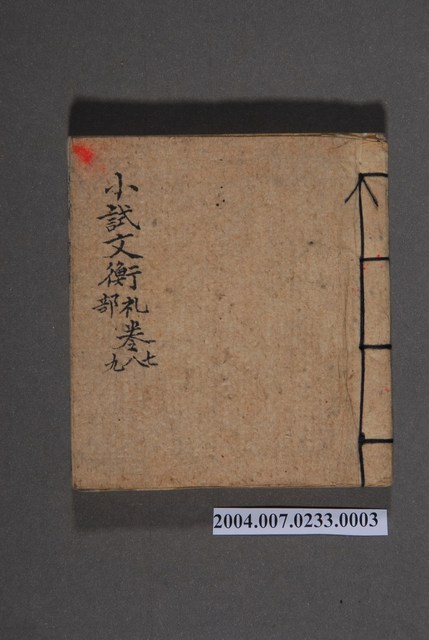 小試文衡
礼部
卷
七八九
2004.007.0233.0003